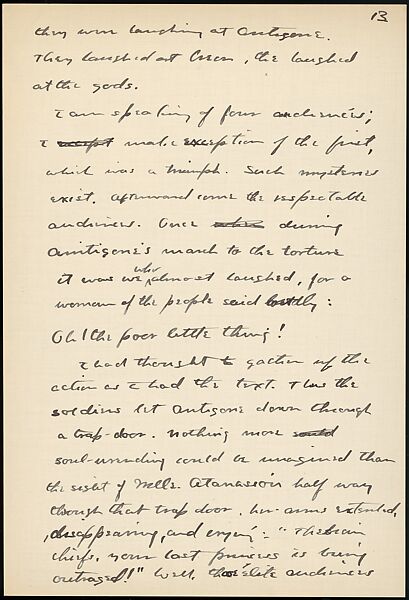 13
they were laughing at Antigone.
They laughed at Creon, the laughed
at the gods.
I am speaking of four audiences;
I except make exception of the first,
which was a triumph. Such mysteries
exist. Afterward came the respectable
audiences. Once during
Antigone's march to the torture
it was we who almost laughed, for a
woman of the people said loudly:
Oh! the poor little thing!
I had thought to gather up the
action as I had the text. Thus the
soldiers let Antigone down through
a trap-door. Nothing more
soul-rending could be imagined than
the sight of Mlle. Atanassiou half way
through that trap door, her arms extended,
disappearing, and crying: "Theban
chiefs, your last princess is being
outraged!" Well, the élite audiences